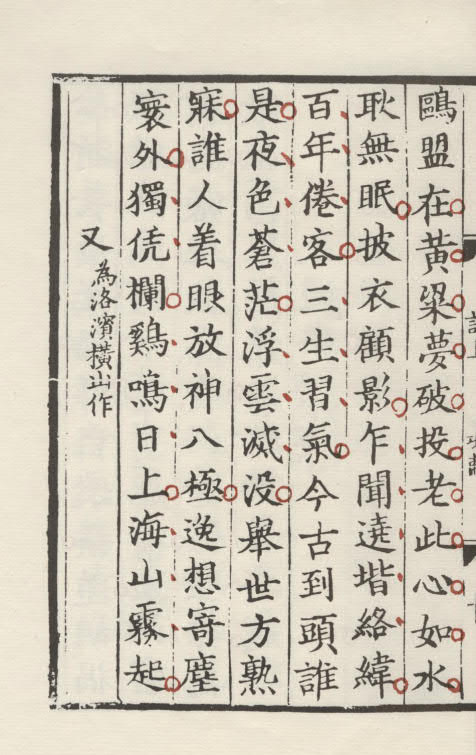 鷗盟在黃粱夢破投老此心如水
耿無眠披衣顧影乍聞遶堦絡緯
百年倦客三生習氣今古到頭誰
是夜色蒼茫浮雲滅没舉世方熟
寐誰人着眼放神八極逸想寄塵
寰外獨凭欄鷄鳴日上海山霧起
又 為洛濱橫山作